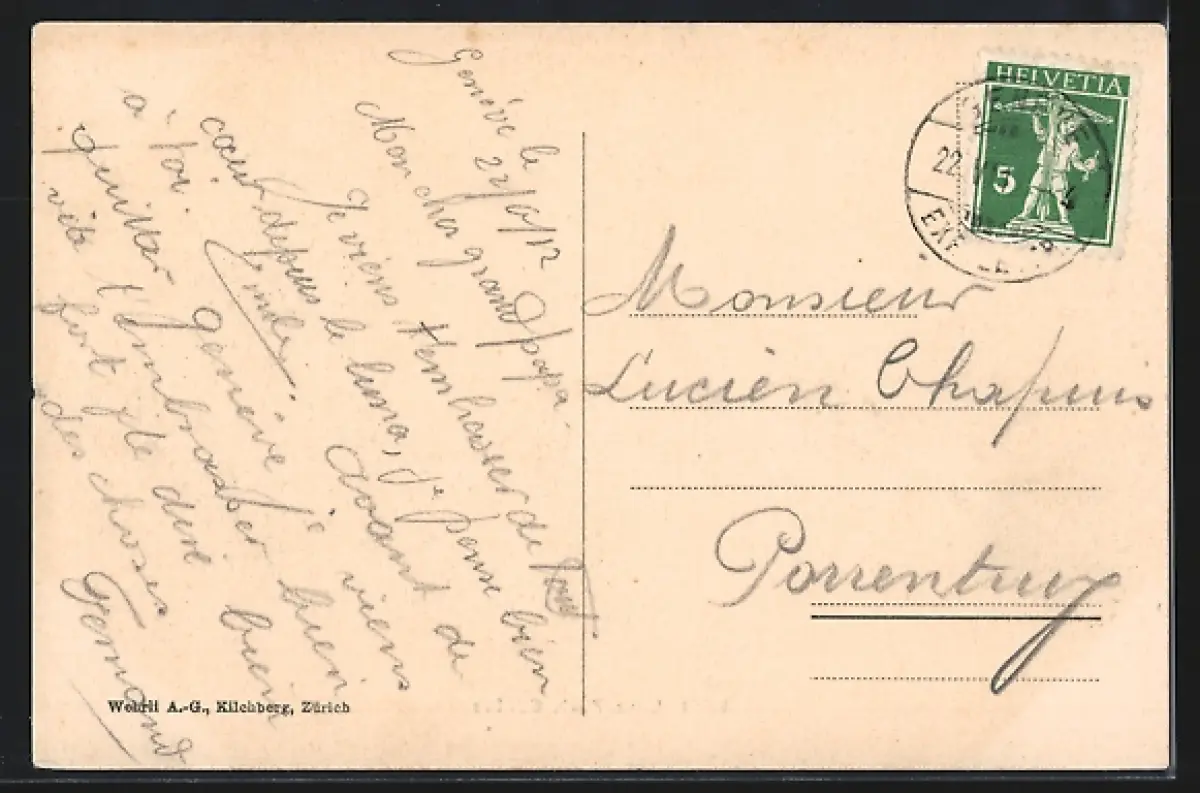 Genève le
22/6/12
Mon cher grand papa
Je viens t'embrasser de tout
cœur, depuis le lema, je pense bien
à toi. Emile avant de
quitter Genève je viens
vite t'embrasser bien
fort je dire bien
des choses
Fernand
Wehrli A.-G., Kilchberg, Zürich
HELVETIA
5
22.
Monsieur
Lucien Chapuis
Porrentruy